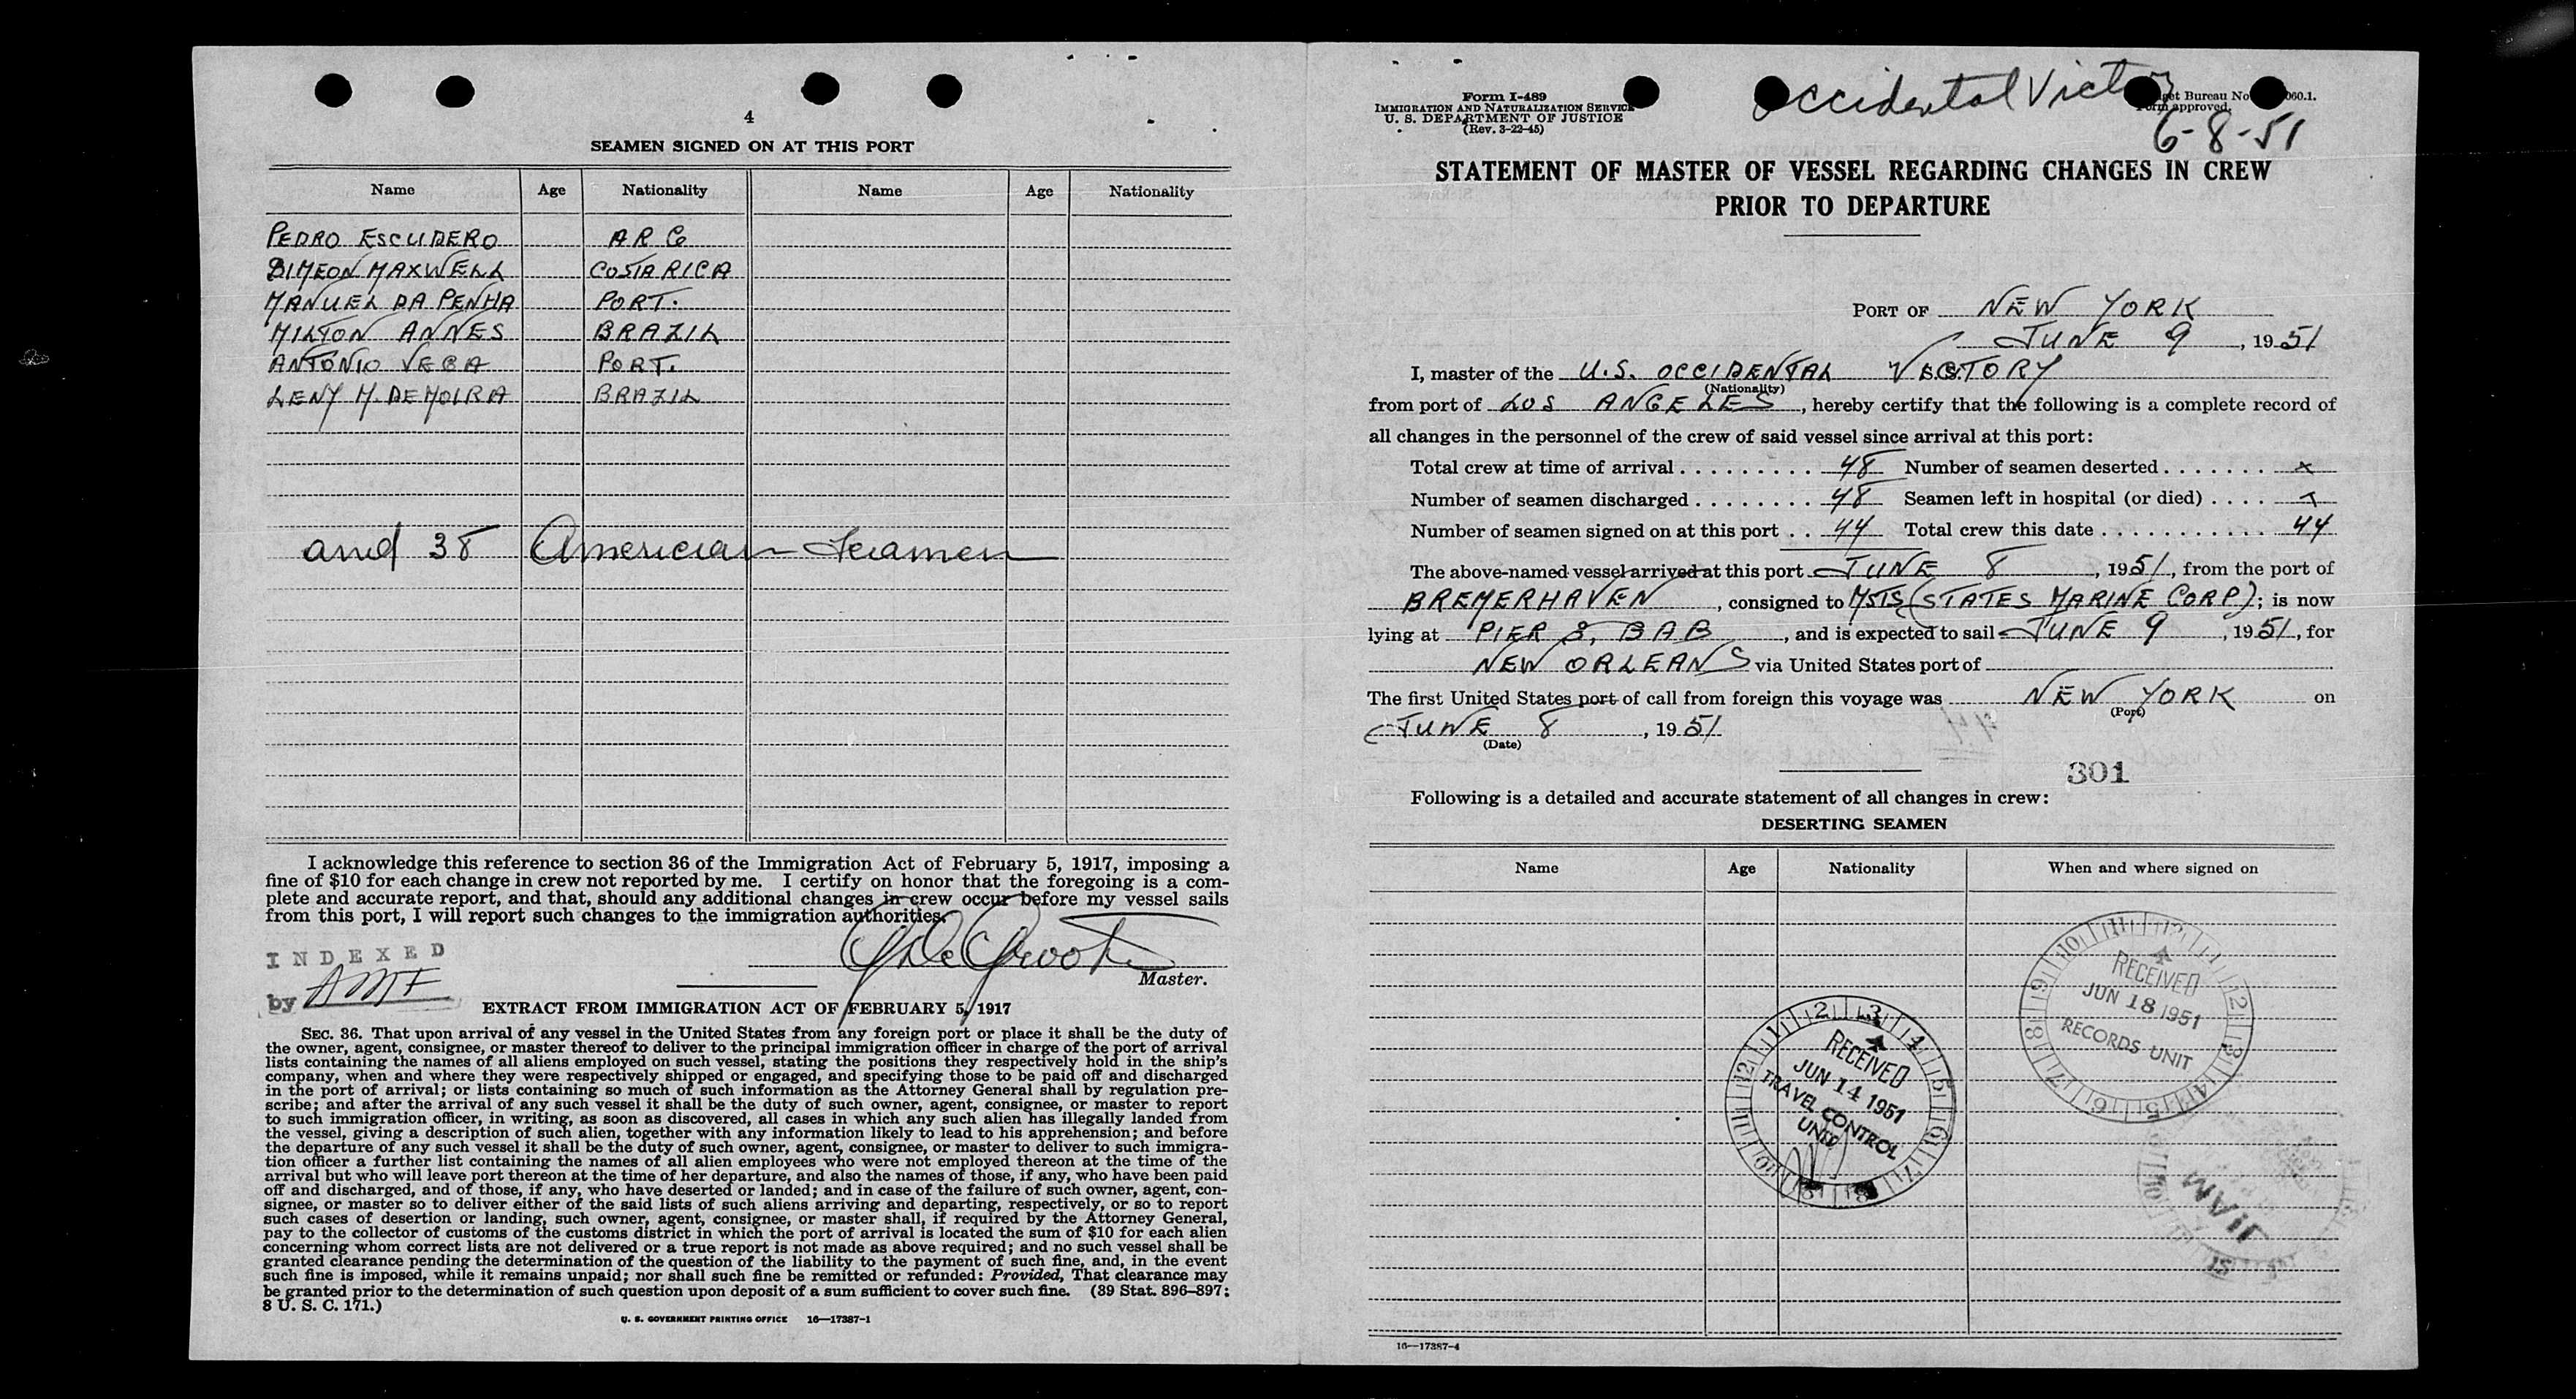 4
SEAMEN SIGNED ON AT THIS PORT
Name Age Nationality Name Age Nationality
PEDRO ESCUDERO ARG
SIMEON MAXWELL COSTA RICA
MANUEL DA PENHA PORT.
MILTON ANNES BRAZIL
ANTONIO VEGA PORT.
LENY M. DEMOIRA BRAZIL
and 38 American Seamen
I acknowledge this reference to section 36 of the Immigration Act of February 5, 1917, imposing a
fine of $10 for each change in crew not reported by me. I certify on honor that the foregoing is a com-
plete and accurate report, and that, should any additional changes in crew occur before my vessel sails
from this port, I will report such changes to the immigration authorities.
INDEXED
by AMF
Master.
EXTRACT FROM IMMIGRATION ACT OF FEBRUARY 5, 1917
SEC. 36. That upon arrival of any vessel in the United States from any foreign port or place it shall be the duty of
the owner, agent, consignee, or master thereof to deliver to the principal immigration officer in charge of the port of arrival
lists containing the names of all aliens employed on such vessel, stating the positions they respectively hold in the ship's
company, when and where they were respectively shipped or engaged, and specifying those to be paid off and discharged
in the port of arrival; or lists containing so much of such information as the Attorney General shall by regulation pre-
scribe; and after the arrival of any such vessel it shall be the duty of such owner, agent, consignee, or master to report
to such immigration officer, in writing, as soon as discovered, all cases in which any such alien has illegally landed from
the vessel, giving a description of such alien, together with any information likely to lead to his apprehension; and before
the departure of any such vessel it shall be the duty of such owner, agent, consignee, or master to deliver to such immigra-
tion officer a further list containing the names of all alien employees who were not employed thereon at the time of the
arrival but who will leave port thereon at the time of her departure, and also the names of those, if any, who have been paid
off and discharged, and of those, if any, who have deserted or landed; and in case of the failure of such owner, agent, con-
signee, or master so to deliver either of the said lists of such aliens arriving and departing, respectively, or so to report
such cases of desertion or landing, such owner, agent, consignee, or master shall, if required by the Attorney General,
pay to the collector of customs of the customs district in which the port of arrival is located the sum of $10 for each alien
concerning whom correct lists are not delivered or a true report is not made as above required; and no such vessel shall be
granted clearance pending the determination of the question of the liability to the payment of such fine, and, in the event
such fine is imposed, while it remains unpaid; nor shall such fine be remitted or refunded: Provided, That clearance may
be granted prior to the determination of such question upon deposit of a sum sufficient to cover such fine. (39 Stat. 896–897;
8 U. S. C. 171.)
U. S. GOVERNMENT PRINTING OFFICE 16—17387-1
Form I-489
IMMIGRATION AND NATURALIZATION SERVICE
U. S. DEPARTMENT OF JUSTICE
(Rev. 3-22-45)
Occidental Victory
Bureau No 060.1.
Form approved.
6-8-51
STATEMENT OF MASTER OF VESSEL REGARDING CHANGES IN CREW
PRIOR TO DEPARTURE
PORT OF NEW YORK
JUNE 9, 1951
I, master of the U.S. OCCIDENTAL VICTORY
(Nationality)
from port of LOS ANGELES, hereby certify that the following is a complete record of
all changes in the personnel of the crew of said vessel since arrival at this port:
Total crew at time of arrival . . . . . . . . . 48 Number of seamen deserted . . . . . . . x
Number of seamen discharged . . . . . . . . 48 Seamen left in hospital (or died) . . . . x
Number of seamen signed on at this port . . 44 Total crew this date . . . . . . . . . . . 44
The above-named vessel arrived at this port JUNE 8, 1951, from the port of
BREMERHAVEN, consigned to MSTS (STATES MARINE CORP); is now
lying at PIER 3, BAB, and is expected to sail JUNE 9, 1951, for
NEW ORLEANS via United States port of
The first United States port of call from foreign this voyage was NEW YORK on
(Port)
JUNE 8, 1951
(Date)
301
Following is a detailed and accurate statement of all changes in crew:
DESERTING SEAMEN
Name Age Nationality When and where signed on
RECEIVED
JUN 18 1951
RECORDS UNIT
RECEIVED
JUN 14 1951
TRAVEL CONTROL
UNIT
16—17387-4